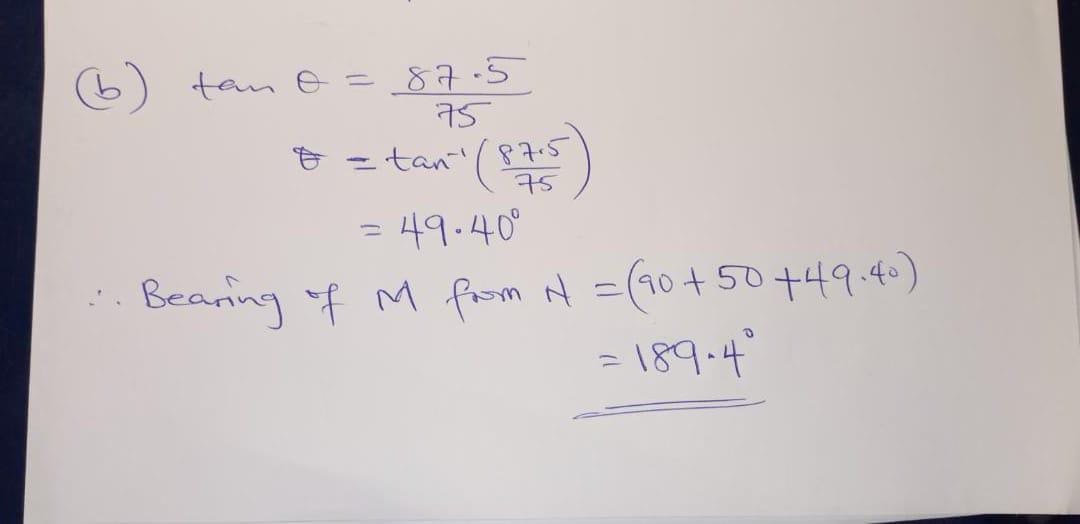 (b) tan θ = 87.5/75
θ = tan⁻¹(87.5/75)
= 49.40°
∴ Bearing of M from N = (90 + 50 + 49.40)
= 189.4°